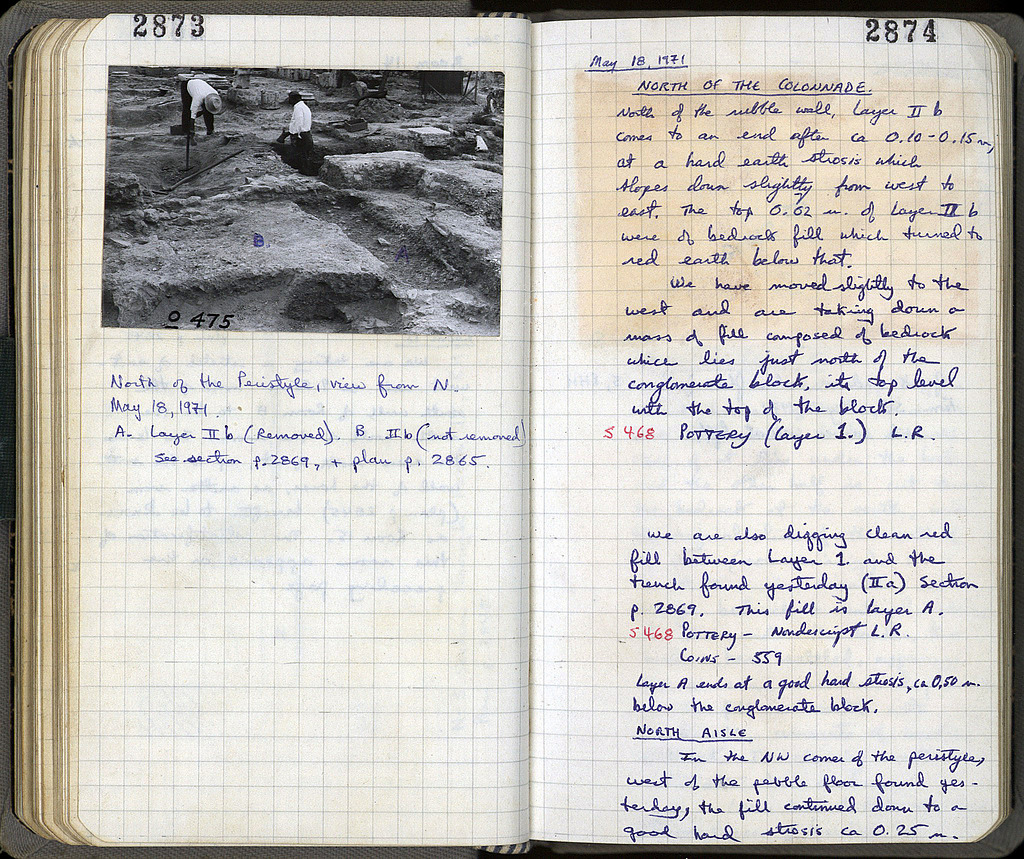 2873
B
A
O 475
North of the Peristyle, view from N.
May 18, 1971.
A. Layer II b (Removed). B. II b (not removed)
See section p. 2869, + plan p. 2865.
2874
May 18, 1971
NORTH OF THE COLONNADE.
North of the rubble wall, Layer II b
comes to an end after ca 0.10-0.15 m,
at a hard earth strosis which
slopes down slightly from west to
east. The top 0.02 m. of Layer II b
were of bedrock fill which turned to
red earth below that.
We have moved slightly to the
west and are taking down a
mass of fill composed of bedrock
which lies just north of the
conglomerate block, its top level
with the top of the block.
S 468 POTTERY (layer 1.) L.R.
We are also digging clean red
fill between Layer 1. and the
trench found yesterday (II a) section
p. 2869. This fill is layer A.
S 468 POTTERY - Nondescript L.R.
Coins - 559
Layer A ends at a good hard strosis, ca 0,50 m.
below the conglomerate block.
NORTH AISLE
In the NW corner of the peristyle,
west of the pebble floor found yes-
terday, the fill continued down to a
good hard strosis ca 0.25 m.